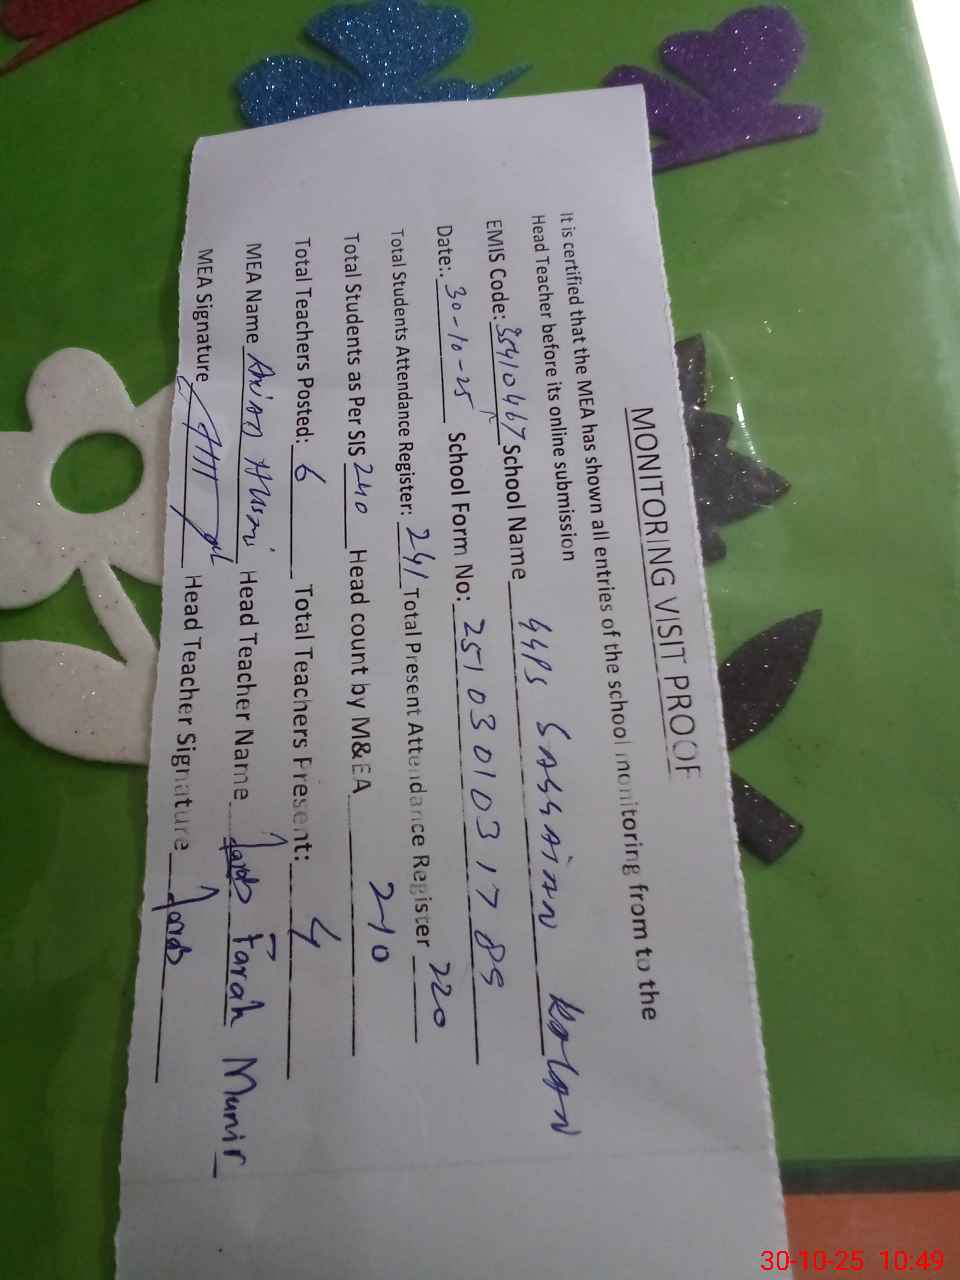 MONITORING VISIT PROOF
It is certified that the MEA has shown all entries of the school monitoring from to the
Head Teacher before its online submission
EMIS Code: 35410467 School Name GGPS
Date: 30-10-25 School Form No: 2510301031789
Total Students Attendance Register: 241 Total Present Attendance Register 220
Total Students as Per SIS 240 Head count by M&EA 210
Total Teachers Posted: 6 Total Teachers Present: 4
MEA Name Head Teacher Name Farah Munir
MEA Signature Head Teacher Signature
30-10-25 10:49